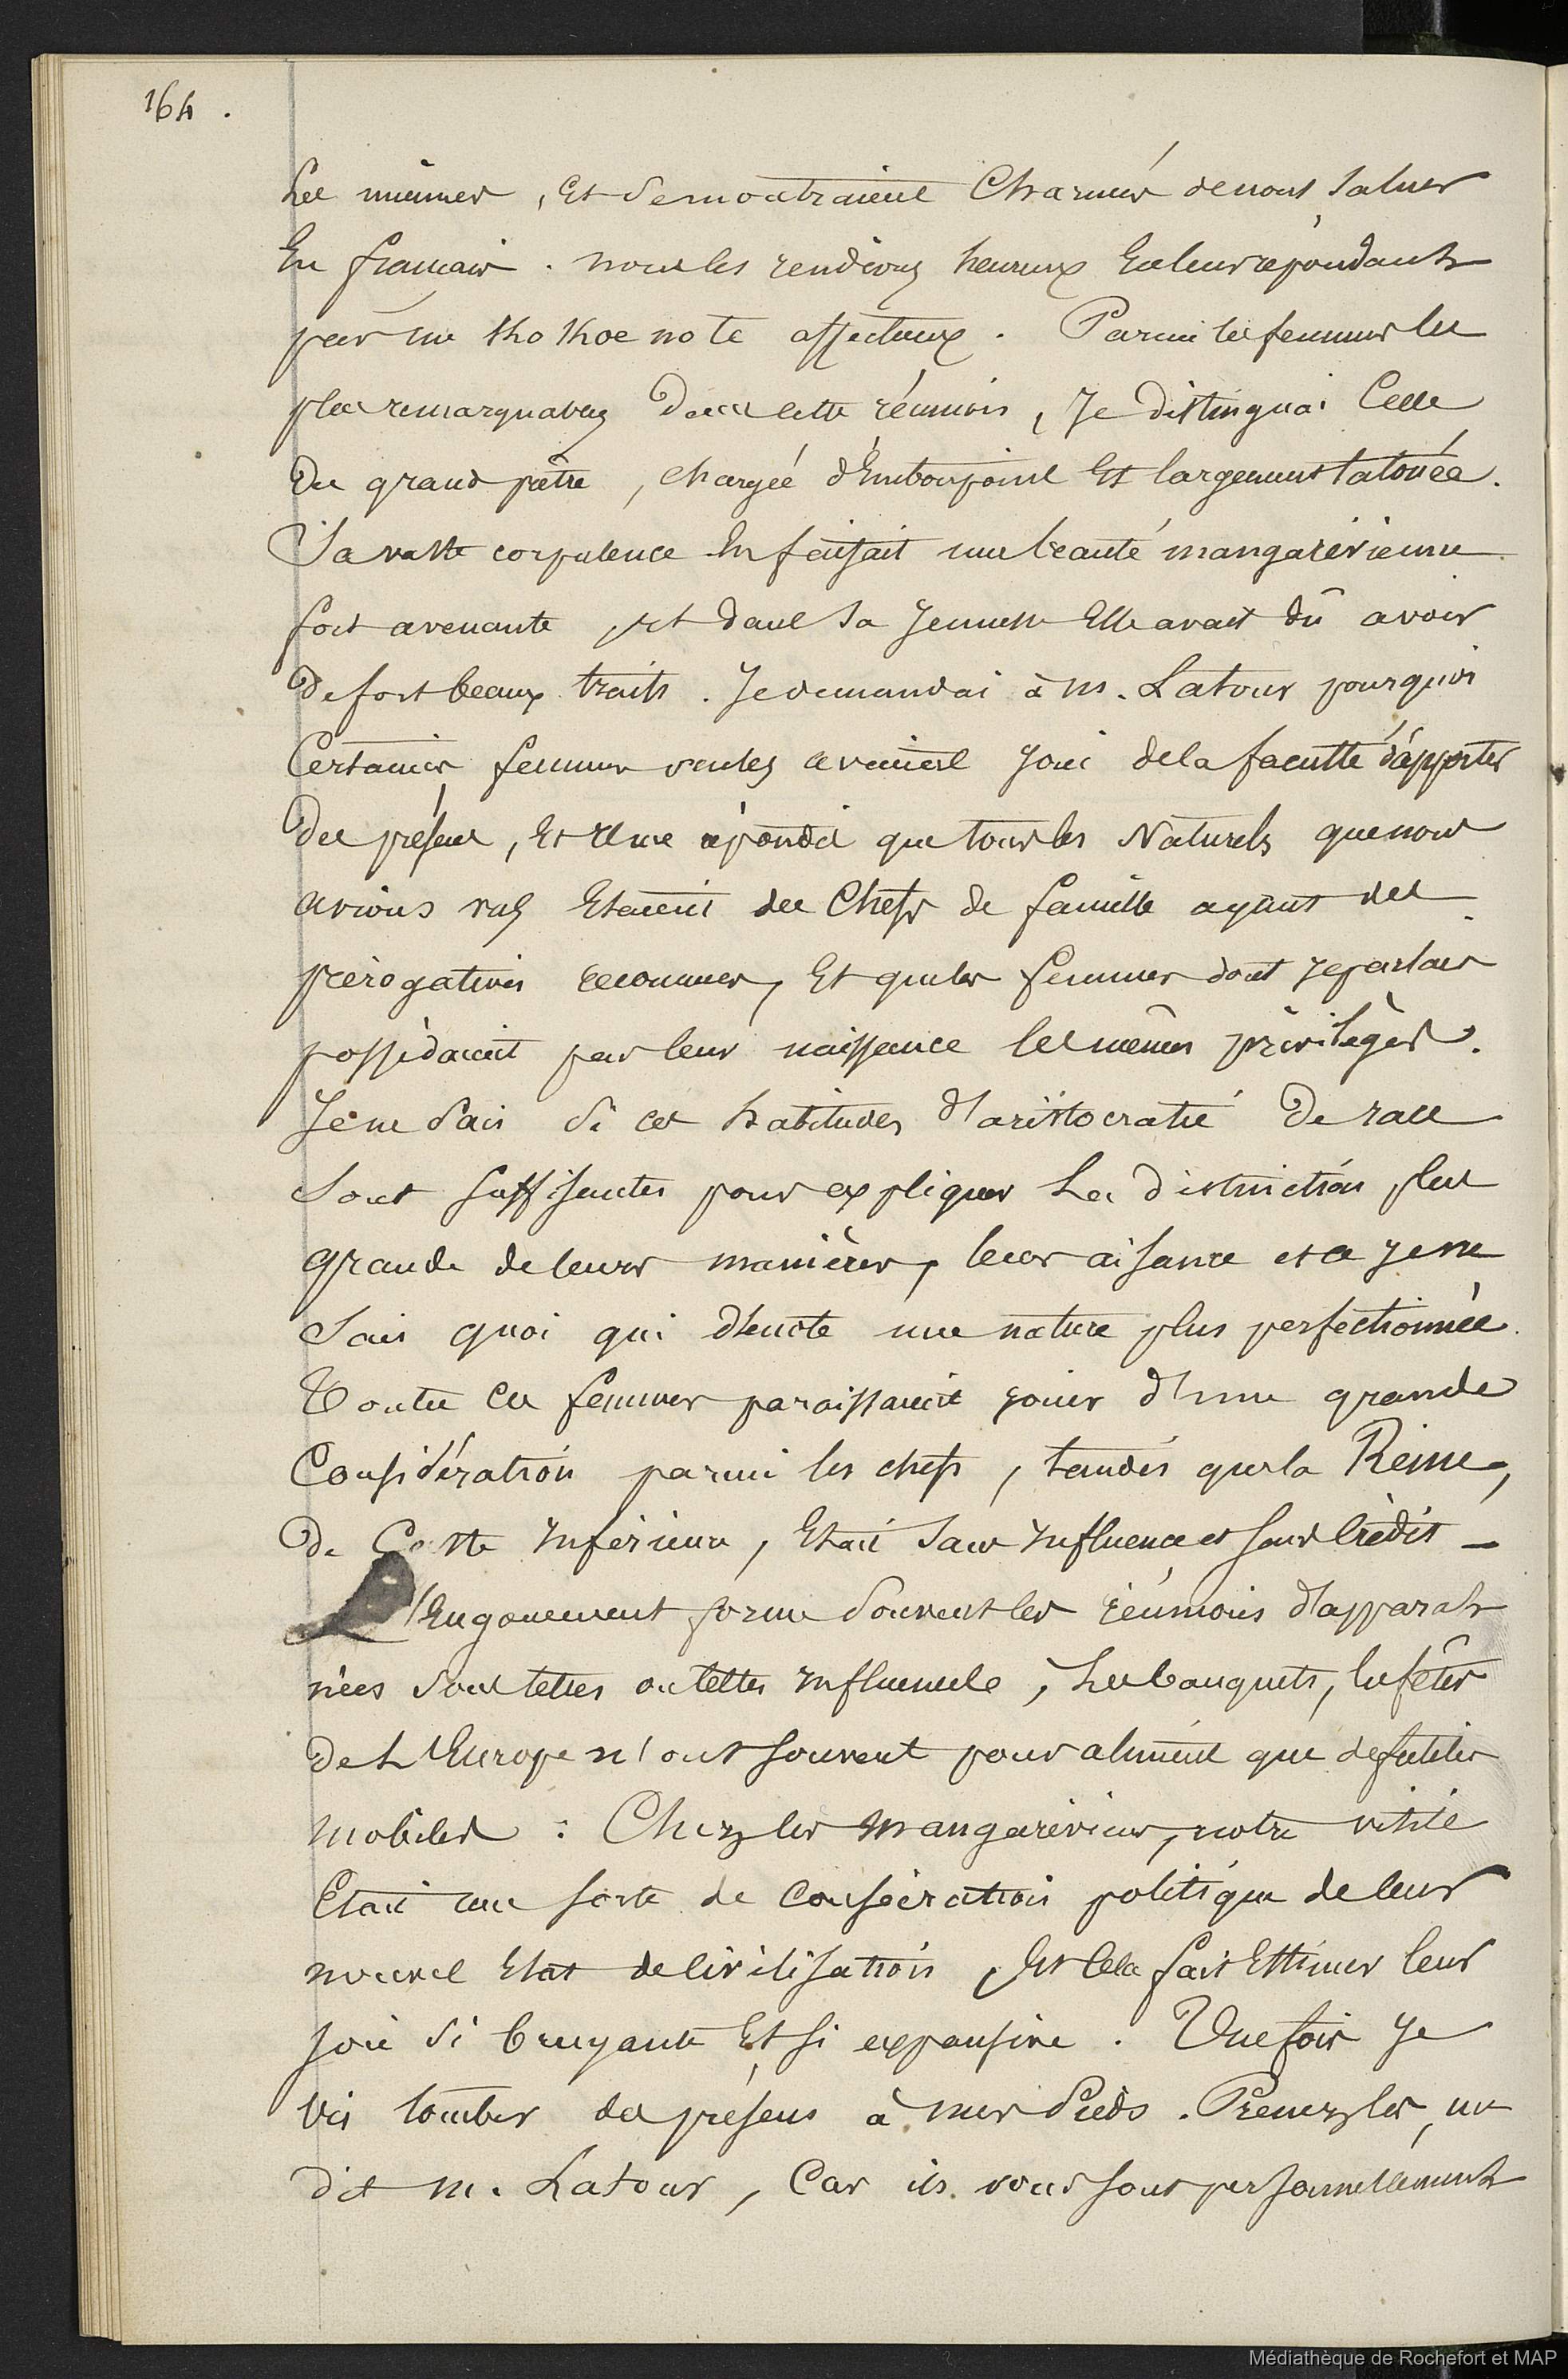 164.
les mêmes, et se montraient charmés de nous saluer
en français. nous les rendions heureux en leur répondant
par un Kho Khoe no te affectueux. Parmi les femmes les
plus remarquables dans cette réunion, je distinguai celle
du grand prêtre, chargée d'embonpoint et largement tatouée.
Sa vaste corpulence en faisait une beauté mangarévienne
fort avenante, et dans sa jeunesse elle avait dû avoir
de fort beaux traits. Je demandai à M. Latour pourquoi
certaines femmes seules avaient joui de la faculté d'apporter
des présens, et il me répondit que tous les Naturels que nous
avions vus étaient des chefs de famille ayant des
prérogatives reconnues, et que les femmes dont je parlais
possédaient par leur naissance les mêmes privilèges.
Je ne sais si ces habitudes d'aristocratie de race
sont suffisantes pour expliquer la distinction plus
grande de leurs manières, leur aisance et ce je ne
sais quoi qui dénote une nature plus perfectionnée.
Toutes ces femmes paraissaient jouir d'une grande
considération parmi les chefs, tandis que la Reine,
de caste inférieure, était sans influence et sans crédit —
L'engouement forme souvent les réunions d'apparat
nées sous telles ou telles influences, les banquets, les fêtes
de L'Europe n'ont souvent pour aliment que de futiles
mobiles : Chez les mangaréviens, notre visite
était une sorte de consécration politique de leur
nouvel état de civilisation, et cela fait estimer leur
joie si bruyante et si expansive. Une fois je
vis tomber des présens à mes pieds. Prenez les, me
dit M. Latour, car ils vous sont personnellement
Médiathèque de Rochefort et MAP